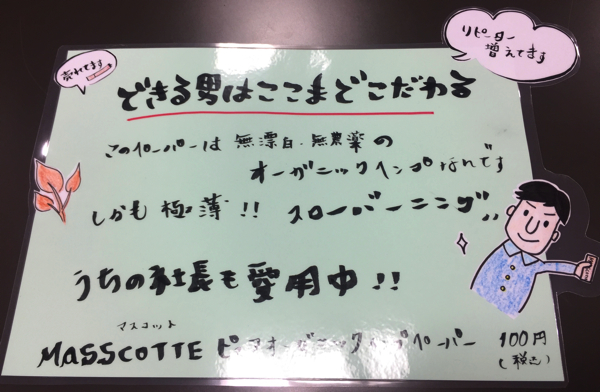 リピーター
増えてます
売れてます
できる男はここまでこだわる
このペーパーは 無漂白、無農薬の
オーガニックヘンプなんです
しかも極薄!! スローバーニング,,
うちの社長も愛用中!!
マスコット
MASSCOTTE ピュアオーガニックヘンプペーパー 100円
(税込)